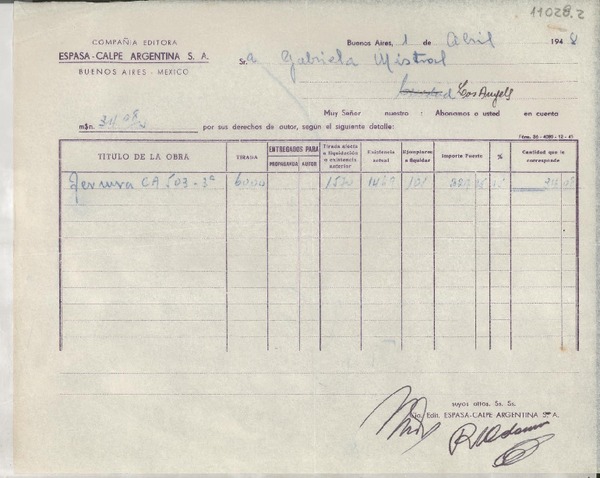 11028.2
COMPAÑIA EDITORA
ESPASA-CALPE ARGENTINA S. A.
BUENOS AIRES - MEXICO
Buenos Aires, 1 de Abril 1948
Sra Gabriela Mistral
Los Angels
Muy Señor nuestro : Abonamos a usted en cuenta
m$n. 34/08 por sus derechos de autor, según el siguiente detalle:
TITULO DE LA OBRA TIRADA ENTREGADOS PARA PROPAGANDA AUTOR Tirada afecta a liquidación o existencia anterior Existencia actual Ejemplares a liquidar Importe Fuerte % Cantidad que le corresponde
Ternura CA 503-3ª 6000 1570 1469 101 15 34 08
suyos attos. Ss. Ss.
Cia. Edit. ESPASA-CALPE ARGENTINA S. A.